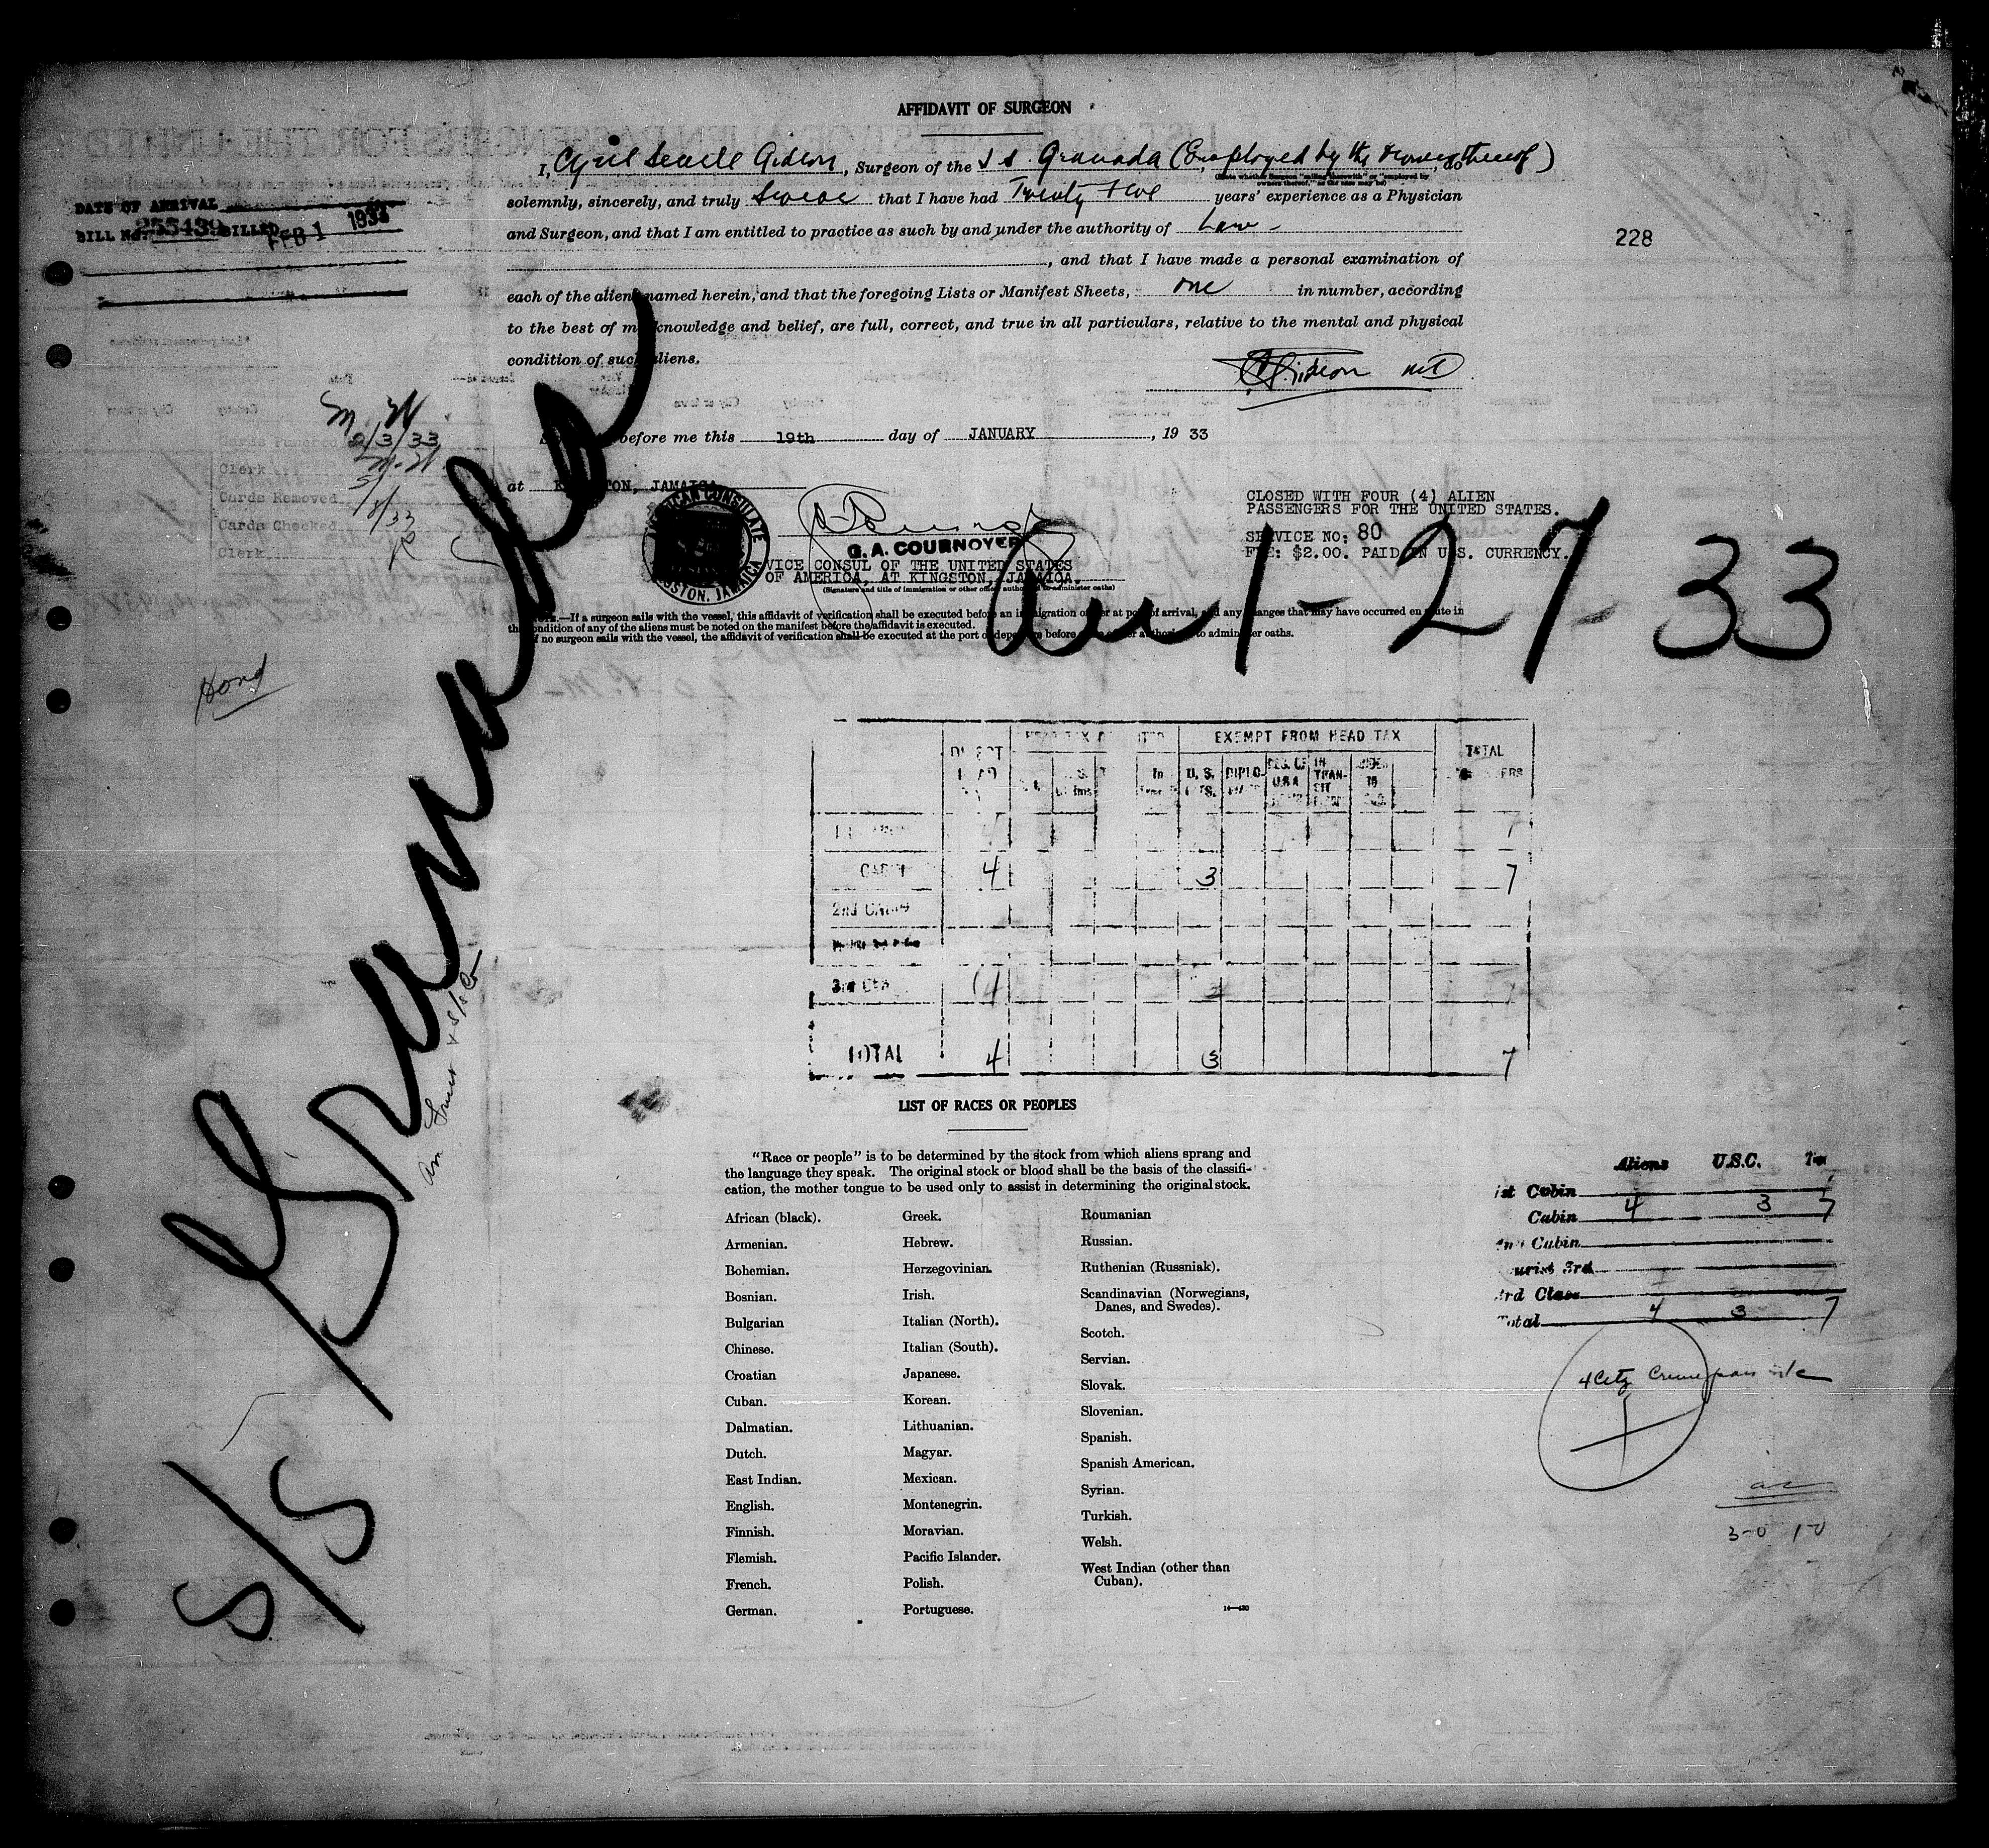 AFFIDAVIT OF SURGEON
I, Cyril Sewell Gideon, Surgeon of the S.S. Granada (Employed by the owners thereof), do
(State whether Surgeon "sailing therewith" or "employed by
owners thereof," as the case may be)
solemnly, sincerely, and truly swear that I have had Twenty five years' experience as a Physician
and Surgeon, and that I am entitled to practice as such by and under the authority of Law -
, and that I have made a personal examination of
each of the aliens named herein, and that the foregoing Lists or Manifest Sheets, one in number, according
to the best of my knowledge and belief, are full, correct, and true in all particulars, relative to the mental and physical
condition of such aliens.
Gideon MD
DATE OF ARRIVAL
BILL No. 255439 BILLED FEB 1 1933
228
before me this 19th day of JANUARY, 19 33
at KINGSTON, JAMAICA
M. W
Cards Punched 2/3/33
Clerk M-W
Cards Removed
Cards Checked
Clerk
AMERICAN CONSULATE
KINGSTON, JAMAICA
G. A. COURNOYER
VICE CONSUL OF THE UNITED STATES
OF AMERICA, AT KINGSTON, JAMAICA.
(Signature and title of immigration or other officer authorized to administer oaths)
CLOSED WITH FOUR (4) ALIEN
PASSENGERS FOR THE UNITED STATES.
SERVICE NO: 80
FEE: $2.00. PAID IN U.S. CURRENCY.
NOTE.—If a surgeon sails with the vessel, this affidavit of verification shall be executed before an immigration officer at port of arrival, and any changes that may have occurred en route in
the condition of any of the aliens must be noted on the manifest before the affidavit is executed.
If no surgeon sails with the vessel, the affidavit of verification shall be executed at the port of departure before an officer authorized to administer oaths.
1-27-33
Hond
S/S Granada
EXEMPT FROM HEAD TAX
TOTAL
U. S. DIPLO- IN TRAN- SIT
CABIN 4 3 7
2nd CABIN
3rd
TOTAL 4 3 7
LIST OF RACES OR PEOPLES
"Race or people" is to be determined by the stock from which aliens sprang and
the language they speak. The original stock or blood shall be the basis of the classifi-
cation, the mother tongue to be used only to assist in determining the original stock.
African (black).
Armenian.
Bohemian.
Bosnian.
Bulgarian
Chinese.
Croatian
Cuban.
Dalmatian.
Dutch.
East Indian.
English.
Finnish.
Flemish.
French.
German.
Greek.
Hebrew.
Herzegovinian.
Irish.
Italian (North).
Italian (South).
Japanese.
Korean.
Lithuanian.
Magyar.
Mexican.
Montenegrin.
Moravian.
Pacific Islander.
Polish.
Portuguese.
Roumanian
Russian.
Ruthenian (Russniak).
Scandinavian (Norwegians,
Danes, and Swedes).
Scotch.
Servian.
Slovak.
Slovenian.
Spanish.
Spanish American.
Syrian.
Turkish.
Welsh.
West Indian (other than
Cuban).
Aliens U.S.C.
1st Cabin
Cabin 4 3 7
2nd Cabin
Tourist 3rd
3rd Class
Total 4 3 7